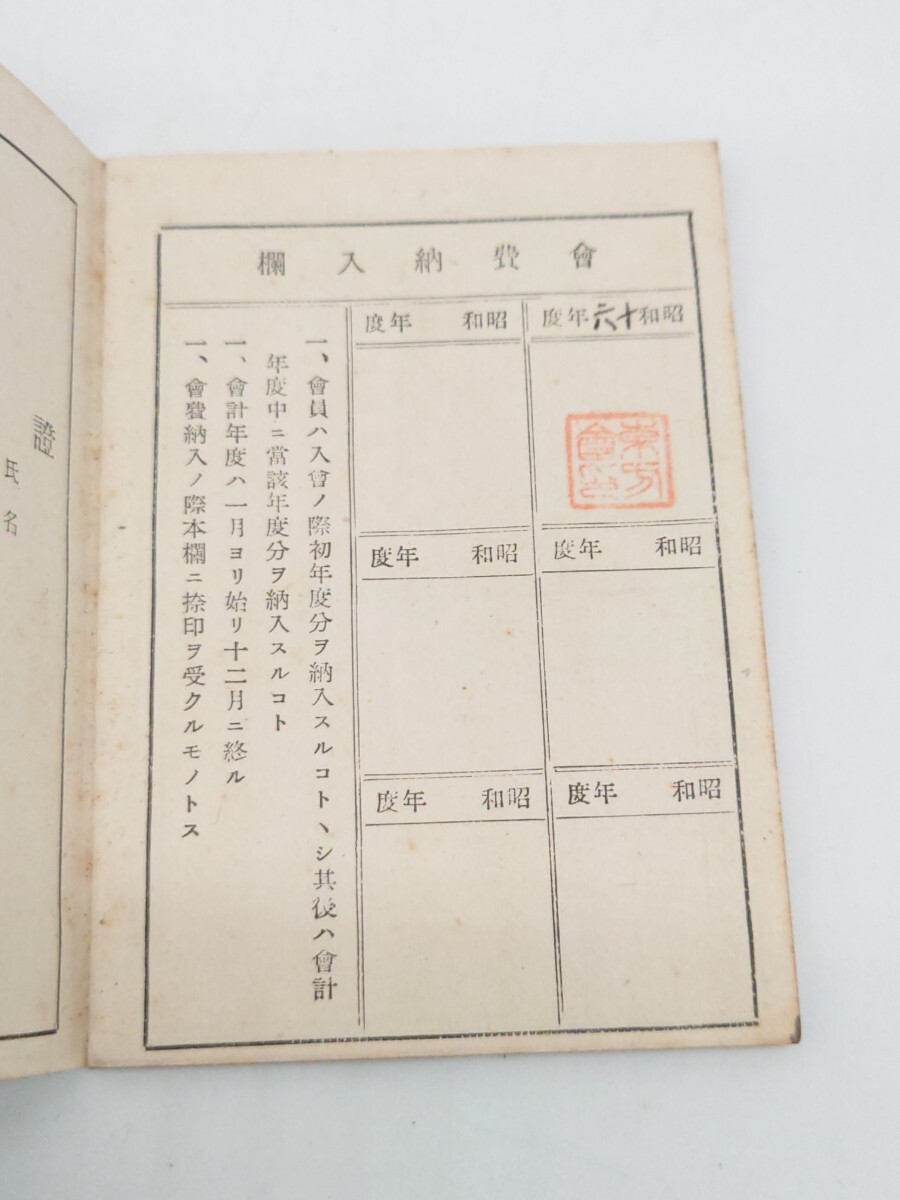 會費納入欄
昭和十六年度
東方
會印
昭和　年度
昭和　年度
昭和　年度
昭和　年度
昭和　年度
一、會員ハ入會ノ際初年度分ヲ納入スルコトヽシ其後ハ會計
年度中ニ當該年度分ヲ納入スルコト
一、會計年度ハ一月ヨリ始リ十二月ニ終ル
一、會費納入ノ際本欄ニ捺印ヲ受クルモノトス
證
氏名